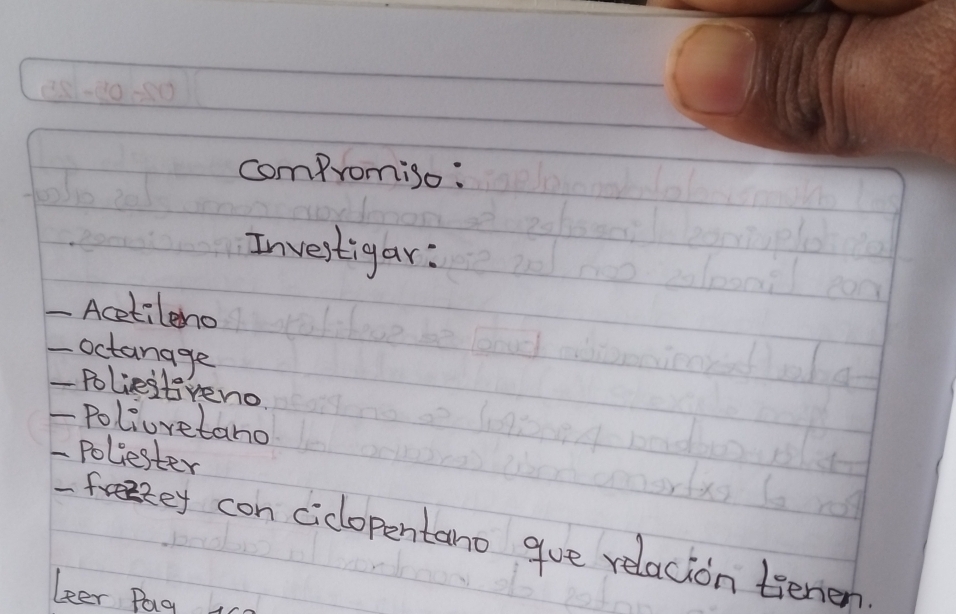 ComPromiso:
Investigar:
- Acetileno
- octanage
- Poliestireno.
- Poliuretano
- Poliester
- frezzey con ciclopentano que relación tienen.
Leer Pag